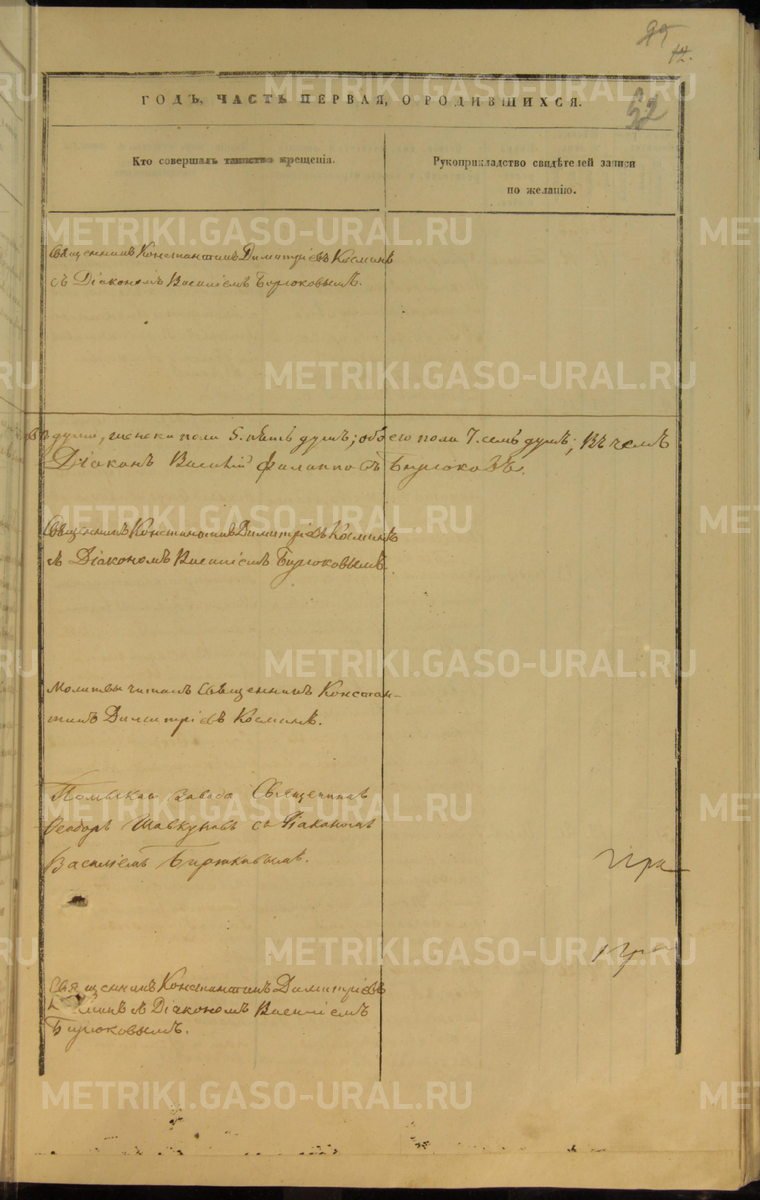 12.
52
ГОДЪ, ЧАСТЬ ПЕРВАЯ, О РОДИВШИХСЯ.
Кто совершалъ таинство крещенія.
Рукоприкладство свидѣтелей записи
по желанію.
Священникъ Константинъ Димитріевъ Косминъ
съ Діакономъ Василіемъ Бирюковымъ.
души, женска пола 5. пять душъ; обоего пола 7. семь душъ; въ чемъ
Діаконъ Василій Филипповъ Бирюковъ.
Священникъ Константинъ Димитріевъ Косминъ
съ Діакономъ Василіемъ Бирюковымъ.
Молитвы читалъ Священникъ Констан-
тинъ Димитріевъ Косминъ.
завода Священникъ
Ѳеодоръ Шавкуновъ съ Діакономъ
Василіемъ Бирюковымъ.
Священникъ Константинъ Димитріевъ
съ Діакономъ Василіемъ
Бирюковымъ.
METRIKI.GASO-URAL.RU